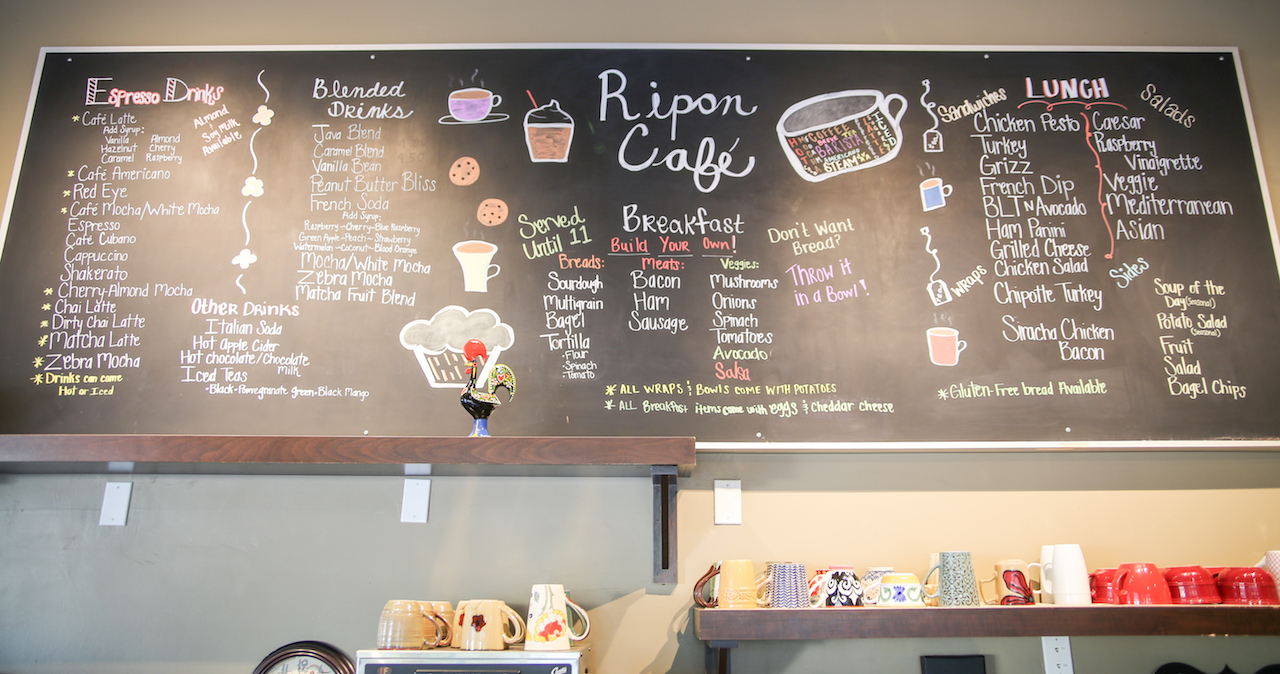 Espresso Drinks
* Café Latte
Add Syrup:
Vanilla Almond
Hazelnut Cherry
Caramel Raspberry
Almond
Soy Milk
Available
* Café Americano
* Red Eye
* Café Mocha/White Mocha
Espresso
Café Cubano
Cappuccino
Shakerato
* Cherry-Almond Mocha
* Chai Latte
* Dirty Chai Latte
* Matcha Latte
* Zebra Mocha
* Drinks can come
Hot or Iced
Blended
Drinks
Java Blend
Caramel Blend
Vanilla Bean
Peanut Butter Bliss
French Soda
Add Syrup:
Raspberry-Cherry-Blue Raspberry
Green Apple-Peach-Strawberry
Watermelon-Coconut-Blood Orange
Mocha/White Mocha
Zebra Mocha
Matcha Fruit Blend
Other Drinks
Italian Soda
Hot Apple Cider
Hot chocolate/Chocolate
Milk
Iced Teas
-Black-Pomegranate green-Black Mango
Ripon
Café
COFFEE
BARISTA
AMERICANO
STEAM
Served
Until 11
Breakfast
Build Your Own!
Breads:
Sourdough
Multigrain
Bagel
Tortilla
-Flour
-Spinach
-Tomato
Meats:
Bacon
Ham
Sausage
Veggies:
Mushrooms
Onions
Spinach
Tomatoes
Avocado
Salsa
Don't Want
Bread?
Throw it
in a Bowl!
* All wraps & bowls come with potatoes
* All Breakfast items come with eggs & cheddar cheese
LUNCH
Sandwiches
Chicken Pesto
Turkey
Grizz
French Dip
BLT N Avocado
Ham Panini
Grilled Cheese
Chicken Salad
Wraps
Chipotle Turkey
Siracha Chicken
Bacon
Salads
Caesar
Raspberry
Vinaigrette
Veggie
Mediterranean
Asian
Sides
Soup of the
Day (Seasonal)
Potato Salad
(Seasonal)
Fruit
Salad
Bagel Chips
* Gluten-Free bread Available